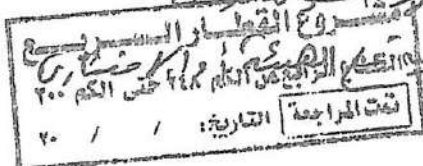 مشروع القطار السريع
الرابع من الكم ٢٤٨ حتى الكم ٣٠٠
تمت المراجعة التاريخ: / / ٢٠